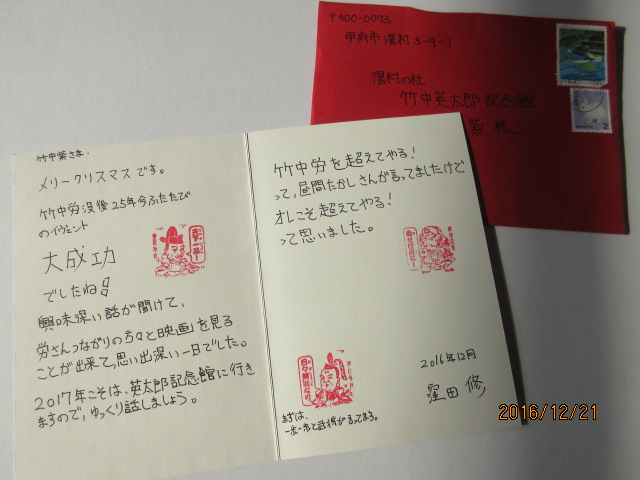 〒400-0073
甲府市湯村3-9-1
湯村の杜
竹中英太郎記念館
紫様
竹中紫さま.
メリークリスマスです。
竹中労没後25年今ふたたび
のイヴェント
大成功
でしたね!!
興味深い話が聞けて、
労さんつながりの方々と映画を見る
ことが出来て、思い出深い一日でした。
2017年こそは、英太郎記念館に行き
ますので、ゆっくり話しましょう。
竹中労を超えてやる!
って、昼間たかしさんが言ってましたけど
オレこそ超えてやる!
って思いました。
2016年12月
窪田 修
まずは、
一歩一歩と武将が言ってます。
2016/12/21